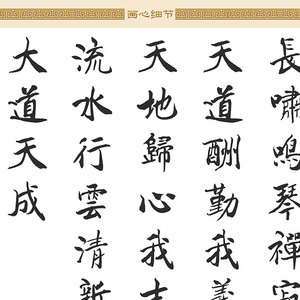 画心细节
長嘯鳴琴禪
天道酬勤我
天地歸心我
流水行雲清新
大道天成